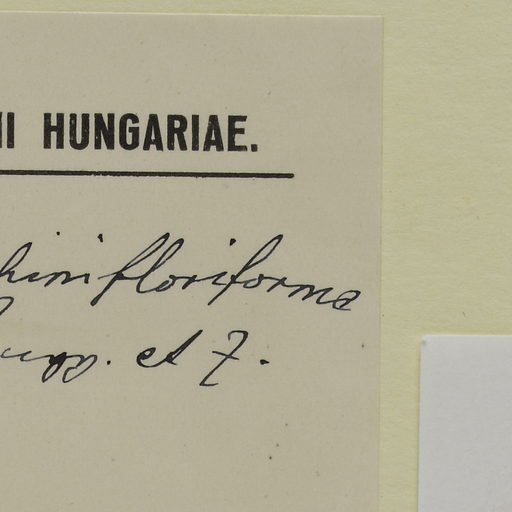 II HUNGARIAE.
hinifloriforme
et Z.